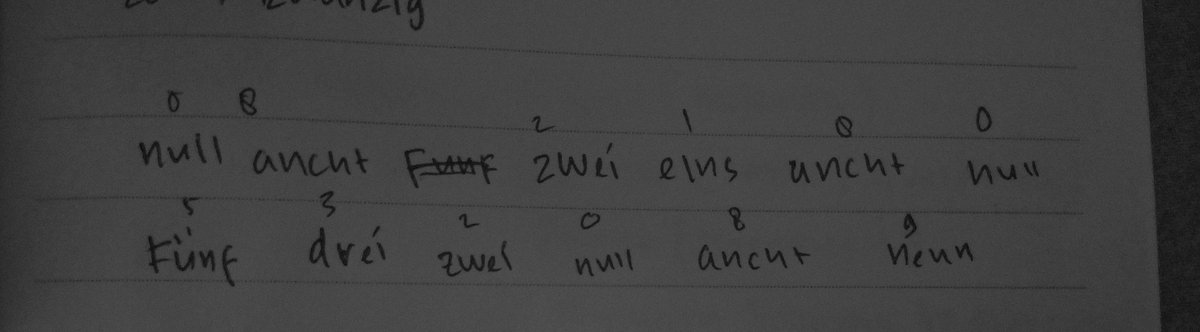 0 8 2 1 8 0
null ancht zwei eins ancht null
5 3 2 0 8 9
Fünf drei zwei null ancht neun